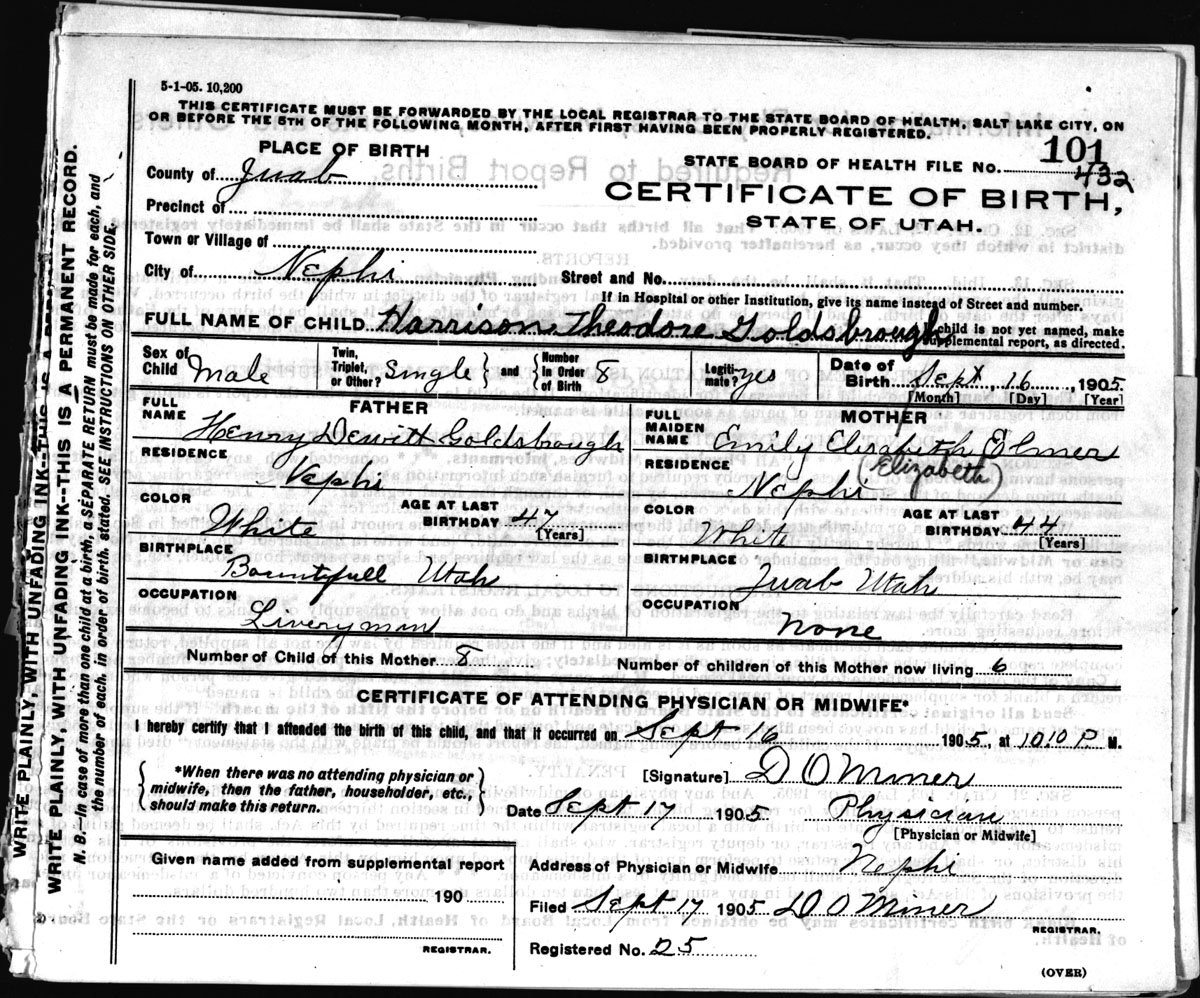 5-1-05. 10,200
THIS CERTIFICATE MUST BE FORWARDED BY THE LOCAL REGISTRAR TO THE STATE BOARD OF HEALTH, SALT LAKE CITY, ON
OR BEFORE THE 5TH OF THE FOLLOWING MONTH, AFTER FIRST HAVING BEEN PROPERLY REGISTERED.
PLACE OF BIRTH
STATE BOARD OF HEALTH FILE No. 101
432
County of Juab
CERTIFICATE OF BIRTH,
Precinct of
STATE OF UTAH.
Town or Village of
City of Nephi Street and No.
If in Hospital or other Institution, give its name instead of Street and number.
FULL NAME OF CHILD Harrison Theodore Goldsbrough
child is not yet named, make
supplemental report, as directed.
Sex of Child Male
Twin, Triplet, or Other? Single and Number in Order of Birth 8
Legitimate? yes
Date of Birth Sept 16, 1905
[Month] [Day] [Year]
FATHER
FULL NAME Henry Dewitt Goldsbrough
RESIDENCE Nephi
COLOR White
AGE AT LAST BIRTHDAY 47
[Years]
BIRTHPLACE Bountifull Utah
OCCUPATION Liveryman
MOTHER
FULL MAIDEN NAME Emily Elizabith Elmer
Elizabeth)
RESIDENCE Nephi
COLOR White
AGE AT LAST BIRTHDAY 44
[Years]
BIRTHPLACE Juab Utah
OCCUPATION None
Number of Child of this Mother 8 Number of children of this Mother now living 6
CERTIFICATE OF ATTENDING PHYSICIAN OR MIDWIFE*
I hereby certify that I attended the birth of this child, and that it occurred on Sept 16 1905, at 1010 P. M.
*When there was no attending physician or
midwife, then the father, householder, etc.,
should make this return.
[Signature] D O Miner
Date Sept 17 1905 Physician
[Physician or Midwife]
Given name added from supplemental report
190
REGISTRAR.
Address of Physician or Midwife Nephi
Filed Sept 17 1905 D O Miner
REGISTRAR.
Registered No. 25
(OVER)
WRITE PLAINLY WITH UNFADING INK--THIS IS A
WRITE PLAINLY, WITH UNFADING INK--THIS IS A PERMANENT RECORD.
N. B.--In case of more than one child at a birth, a SEPARATE RETURN must be made for each, and
the number of each, in order of birth, stated. SEE INSTRUCTIONS ON OTHER SIDE.